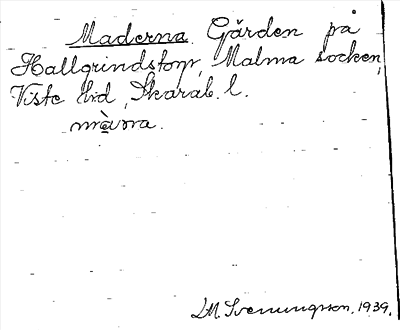 Maderna Gärden på
Hallgrindstorp, Malma socken,
Viste hd, Skarab. l.
mà̱ɳa.
I.M. Svenungsson, 1939.